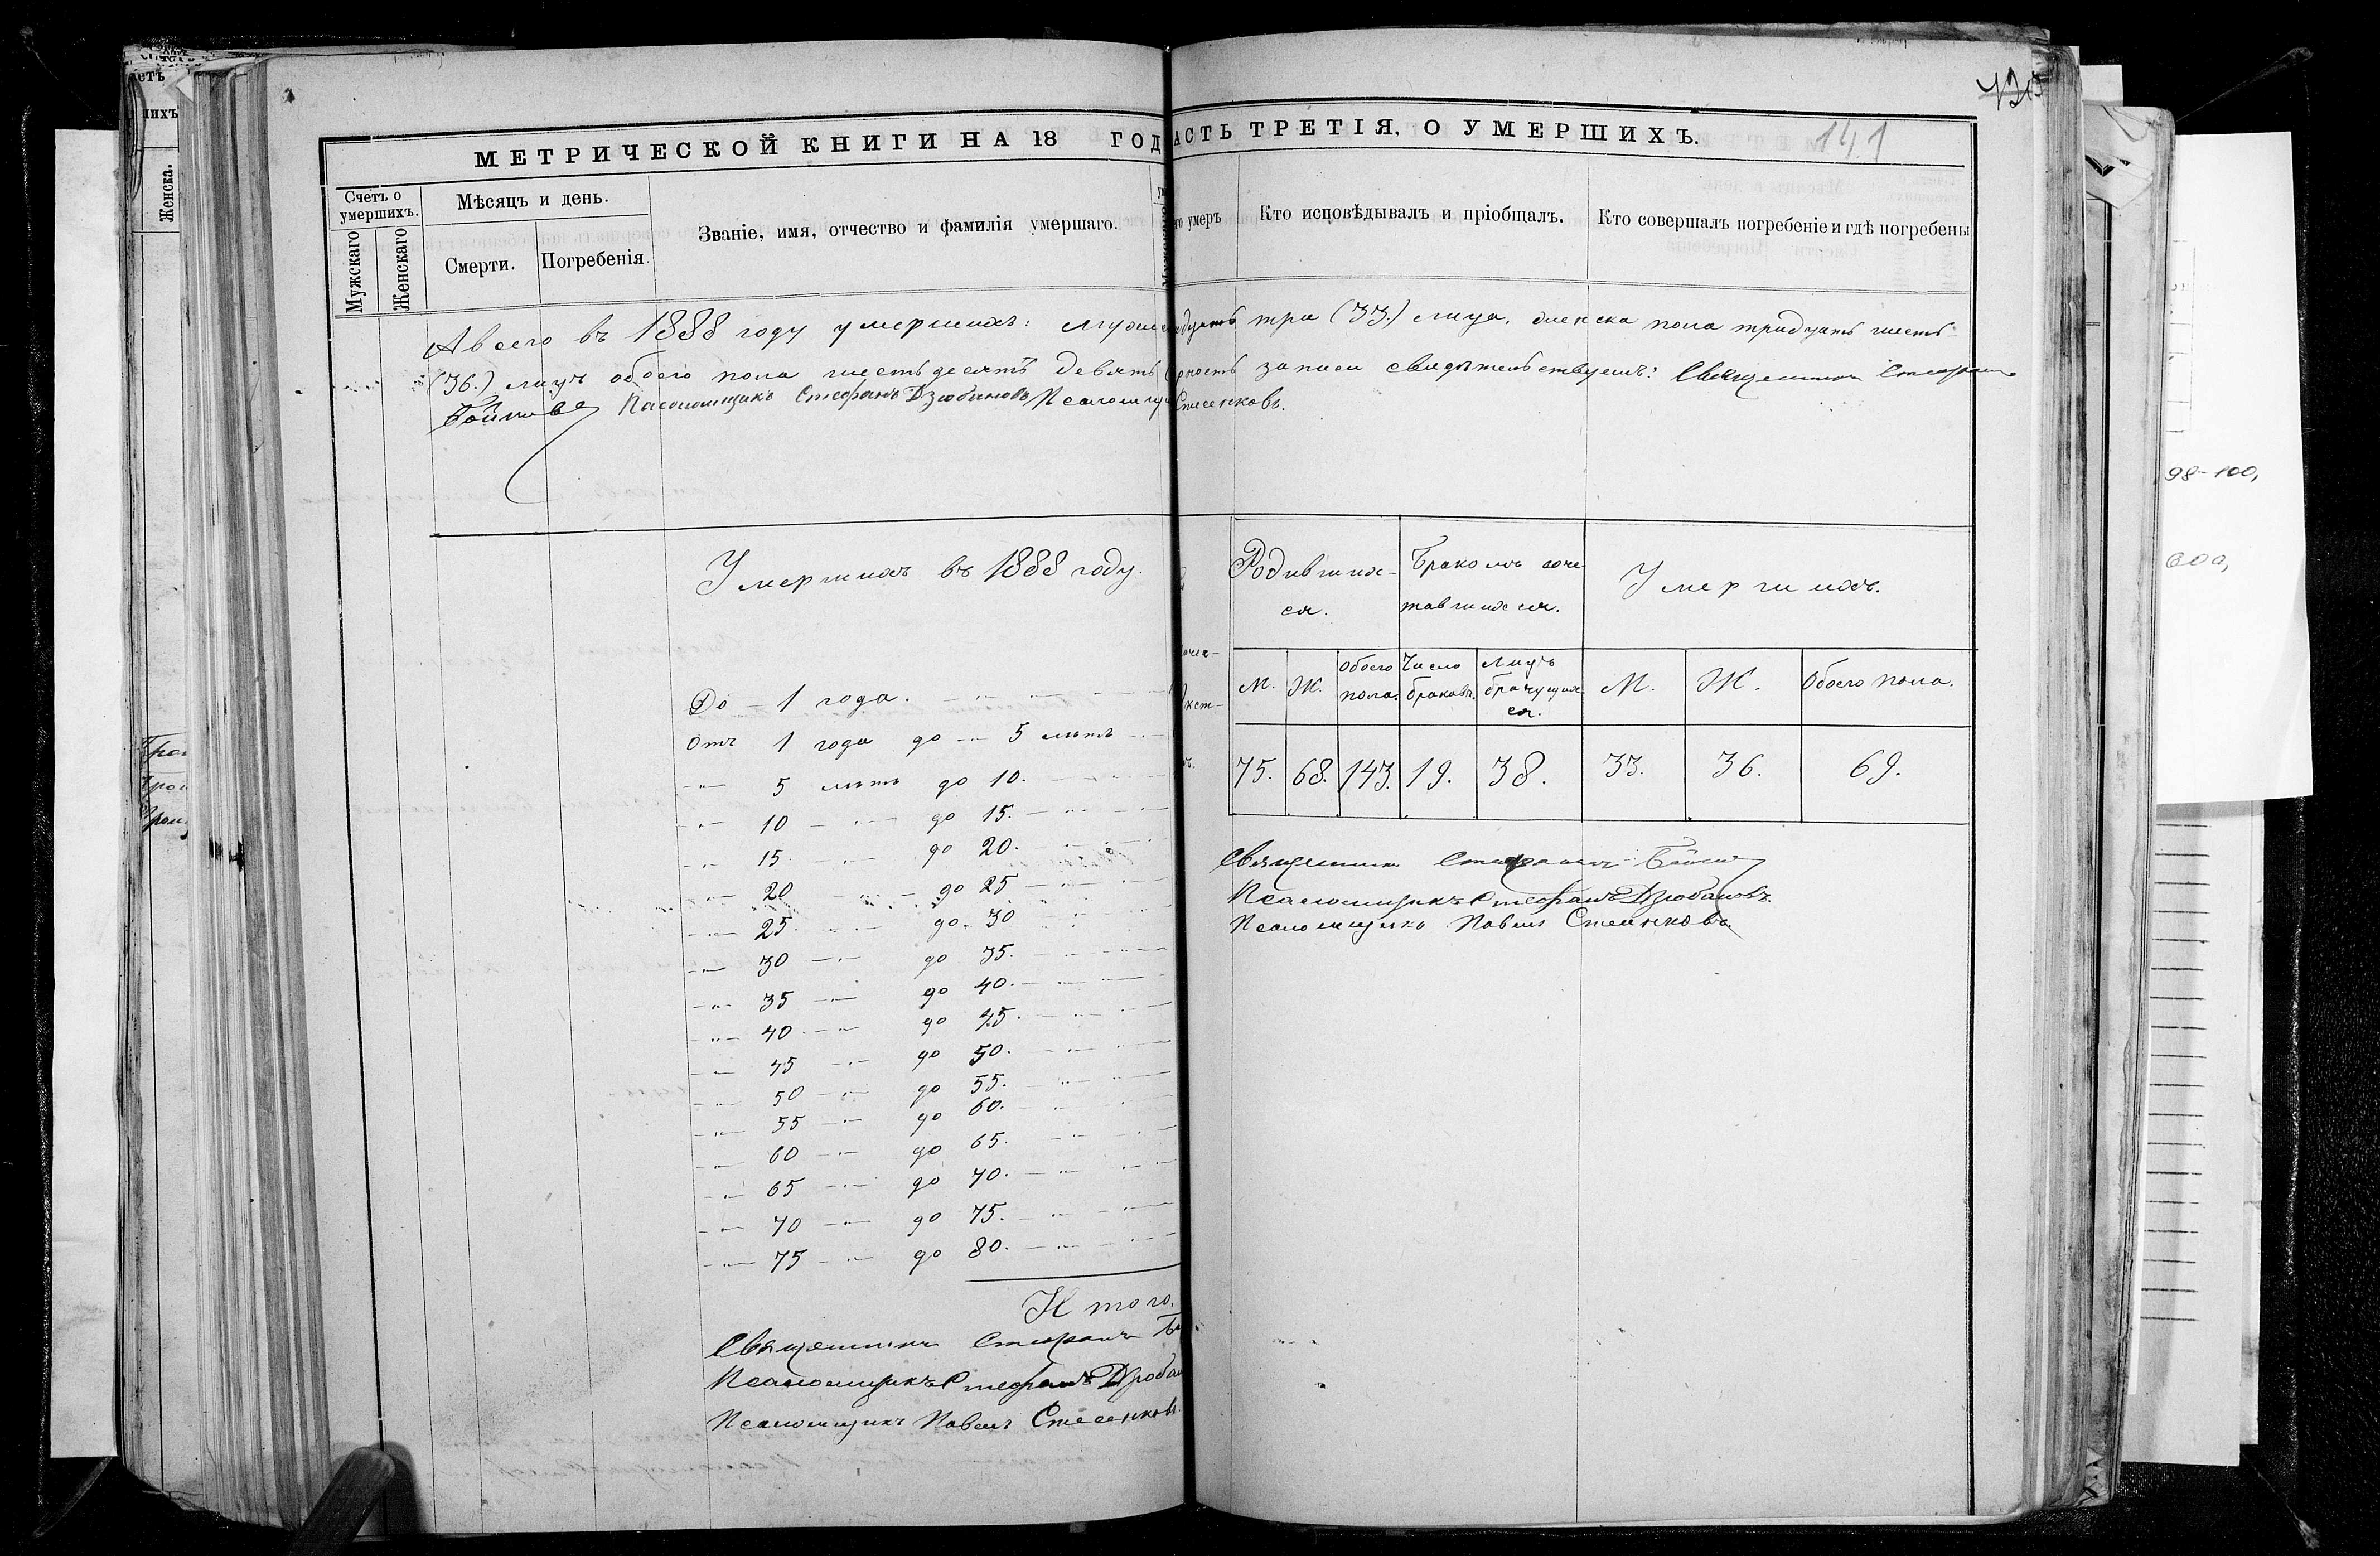 МЕТРИЧЕСКОЙ КНИГИ НА 18 ГОД
АСТЬ ТРЕТІЯ, О УМЕРШИХЪ.
141
Счетъ о умершихъ.
Мужскаго
Женскаго
Мѣсяцъ и день.
Смерти.
Погребенія.
Званіе, имя, отчество и фамилія умершаго.
го умеръ
Кто исповѣдывалъ и пріобщалъ.
Кто совершалъ погребеніе и гдѣ погребены
А всего въ 1888 году умершихъ: три (33.) лица, женска пола тридцать шесть
(36.) лицъ обоего пола шестьдесятъ девять записи свидѣтельствуемъ: Священникъ Стефанъ
Псаломщикъ Стефанъ Дзюбановъ, Псаломщи
Умершихъ въ 1888 году.
До 1 года.
Отъ 1 года до 5 лѣтъ
" 5 лѣтъ до 10.
" 10 " до 15.
" 15 " до 20.
" 20 " до 25
" 25 " до 30
" 30 " до 35.
" 35 " до 40.
" 40 " до 45.
" 45 " до 50.
" 50 " до 55.
" 55 " до 60.
" 60 " до 65.
" 65 " до 70.
" 70 " до 75.
" 75 " до 80.
Итого.
Священникъ Стефанъ
Псаломщикъ Стефанъ Дзюбан
Псаломщикъ Павелъ
Родивших-
ся.
Бракомъ соче
тавшихся.
Умершихъ.
М. Ж. Обоего пола. Число браковъ. Лицъ брачущих ся. М. Ж. Обоего пола.
75. 68. 143. 19. 38. 33. 36. 69.
Священникъ Стефанъ
Псаломщикъ Стефанъ Дзюбановъ.
Псаломщикъ Павелъ
ихъ
Женска.
98-100,
600,